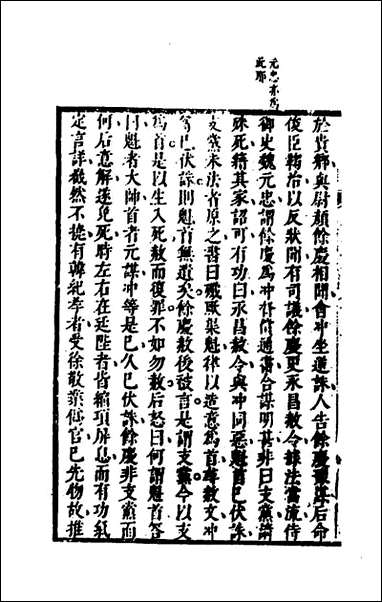 元忠亦爲
此耶
於貴鄉與尉顏餘慶相聞會冲坐逆誅人告餘慶豫謀后命
俊臣鞫治以反狀聞有司議餘慶更永昌赦令據法當流侍
御史魏元忠謂餘慶爲冲督償通書合謀明甚非曰支黨請
殊死籍其家詔可有功曰永昌赦令與冲同惡魁首已伏誅
支黨未法者原之書曰殲厥渠魁律以造意爲首尋赦文冲
旣已伏誅則魁首無遺矣餘慶赦後被言是謂支黨今以支
爲首是以生入死赦而復罪不如勿赦后怒曰何謂魁首答
曰魁者大帥首者元謀冲等是已久已伏誅餘慶非支黨而
何后意解遂免死時左右在廷陛者皆縮項屏息而有功氣
定言詳截然不撓有韓紀孝者受徐敬業僞官已先物故推